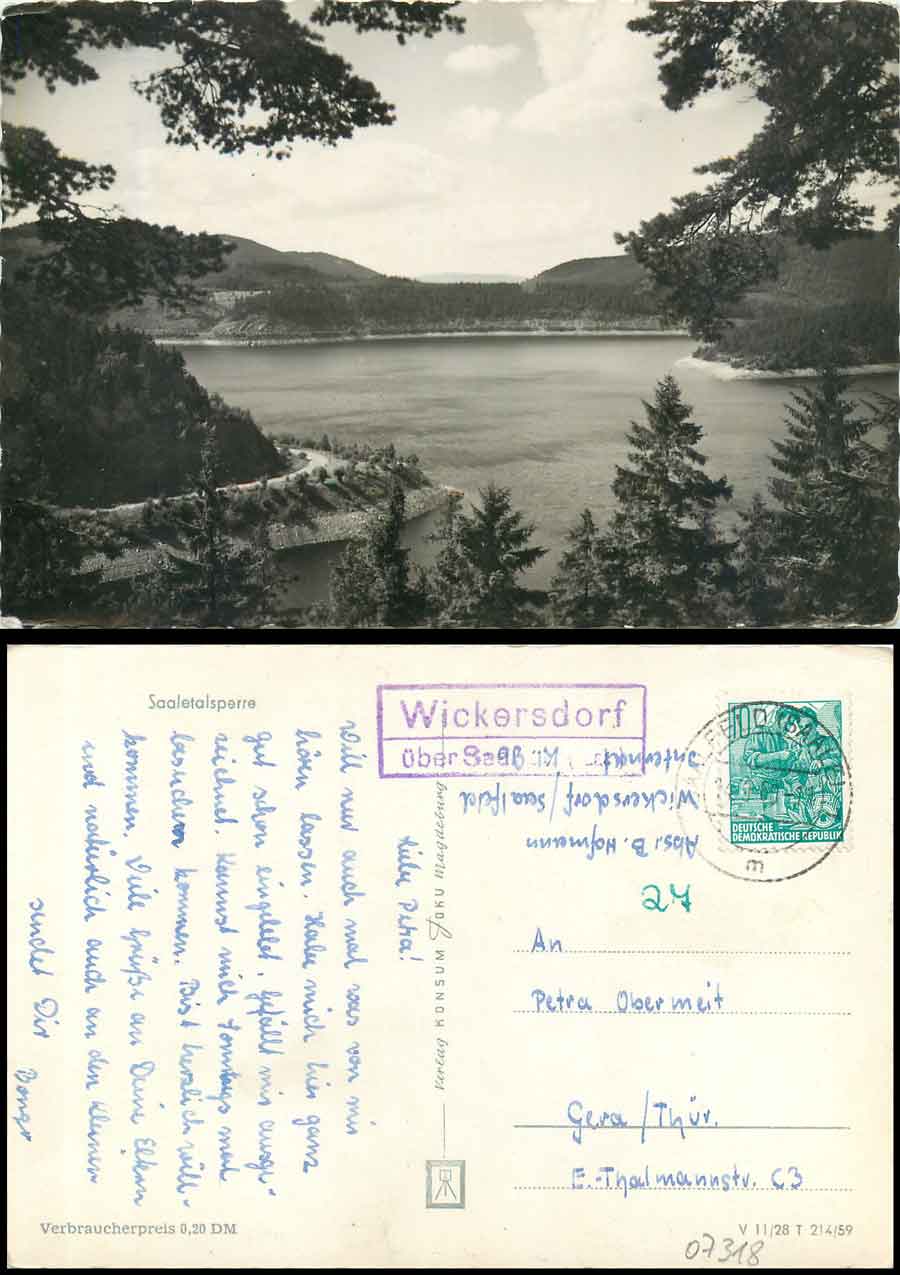 Saaletalsperre
Wickersdorf
über Saalf
Abs.: B. Hofmann
Wickersdorf/Saalfeld
Internat
10
DEUTSCHE
DEMOKRATISCHE REPUBLIK
m
24
Liebe Petra!
Will nur auch mal was von mir
hören lassen. Habe mich hier ganz
gut schon eingelebt. Gefällt mir ausge-
zeichnet. Kannst mich Sonntags mal
besuchen kommen. Bist herzlich will-
kommen. Viele Grüße an Deine Eltern
und natürlich auch an den kleinen
sendet Dir
VERLAG KONSUM FOKU Magdeburg
An
Petra Obermeit
Gera/Thür.
E.-Thalmannstr. C3
Verbraucherpreis 0,20 DM
V 11/28 T 214/59
07318